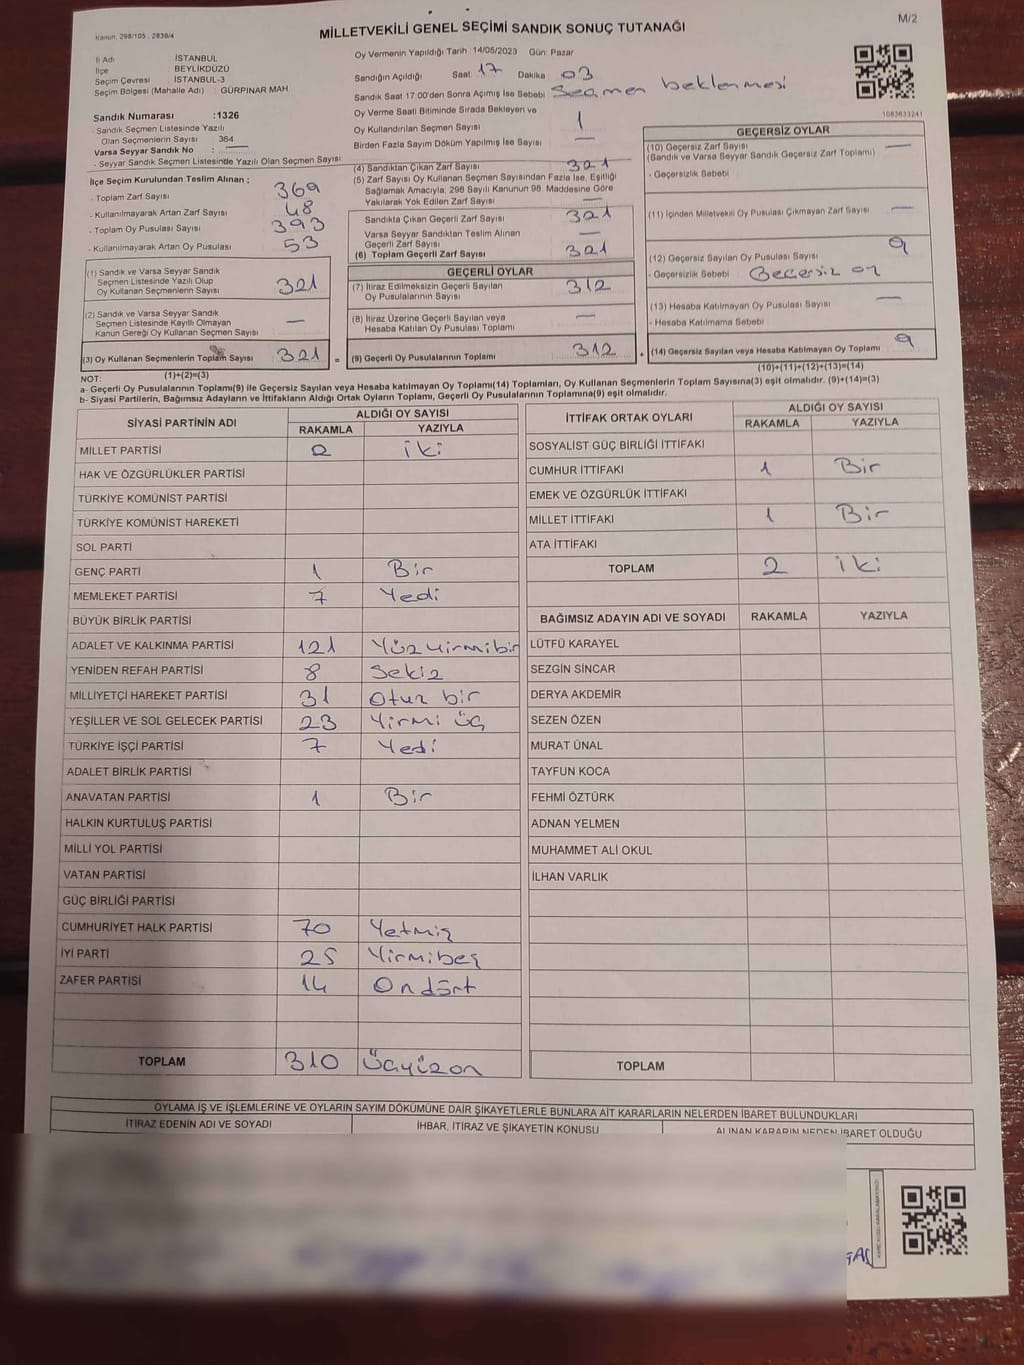 Kanun: 298/105, 2839/4
MİLLETVEKİLİ GENEL SEÇİMİ SANDIK SONUÇ TUTANAĞI
M/2
İl Adı : İSTANBUL
İlçe : BEYLİKDÜZÜ
Seçim Çevresi : İSTANBUL-3
Seçim Bölgesi (Mahalle Adı) : GÜRPINAR MAH.
Oy Vermenin Yapıldığı Tarih :14/05/2023 Gün: Pazar
Sandığın Açıldığı Saat: 17 Dakika : 03
Sandık Saat 17:00'den Sonra Açımış İse Sebebi Seçmen beklenmesi
Oy Verme Saati Bitiminde Sırada Bekleyen ve
Oy Kullandırılan Seçmen Sayısı 1
Birden Fazla Sayım Döküm Yapılmış İse Sayısı : —
1083633241
Sandık Numarası :1326
- Sandık Seçmen Listesinde Yazılı
Olan Seçmenlerin Sayısı : 364
Varsa Seyyar Sandık No : —
- Seyyar Sandık Seçmen Listesinde Yazılı Olan Seçmen Sayısı
İlçe Seçim Kurulundan Teslim Alınan ;
- Toplam Zarf Sayısı : 369
- Kullanılmayarak Artan Zarf Sayısı : 48
- Toplam Oy Pusulası Sayısı : 393
- Kullanılmayarak Artan Oy Pusulası : 53
(1) Sandık ve Varsa Seyyar Sandık
Seçmen Listesinde Yazılı Olup
Oy Kullanan Seçmenlerin Sayısı 321
(2) Sandık ve Varsa Seyyar Sandık
Seçmen Listesinde Kayıtlı Olmayan
Kanun Gereği Oy Kullanan Seçmen Sayısı —
(3) Oy Kullanan Seçmenlerin Toplam Sayısı 321 =
(1)+(2)=(3)
(4) Sandıktan Çıkan Zarf Sayısı 321
(5) Zarf Sayısı Oy Kullanan Seçmen Sayısından Fazla İse, Eşitliği
Sağlamak Amacıyla; 298 Sayılı Kanunun 98. Maddesine Göre
Yakılarak Yok Edilen Zarf Sayısı —
Sandıkta Çıkan Geçerli Zarf Sayısı 321
Varsa Seyyar Sandıktan Teslim Alınan
Geçerli Zarf Sayısı —
(6) Toplam Geçerli Zarf Sayısı 321
GEÇERLİ OYLAR
(7) İtiraz Edilmeksizin Geçerli Sayılan
Oy Pusulalarının Sayısı 312
(8) İtiraz Üzerine Geçerli Sayılan veya
Hesaba Katılan Oy Pusulası Toplamı —
(9) Geçerli Oy Pusulalarının Toplamı 312 +
GEÇERSİZ OYLAR
(10) Geçersiz Zarf Sayısı —
(Sandık ve Varsa Seyyar Sandık Geçersiz Zarf Toplamı)
- Geçersizlik Sebebi :
(11) İçinden Milletvekili Oy Pusulası Çıkmayan Zarf Sayısı —
(12) Geçersiz Sayılan Oy Pusulası Sayısı 9
- Geçersizlik Sebebi : Geçersiz oy
(13) Hesaba Katılmayan Oy Pusulası Sayısı —
- Hesaba Katılmama Sebebi :
(14) Geçersiz Sayılan veya Hesaba Katılmayan Oy Toplamı 9
(10)+(11)+(12)+(13)=(14)
NOT:
a- Geçerli Oy Pusulalarının Toplamı(9) ile Geçersiz Sayılan veya Hesaba katılmayan Oy Toplamı(14) Toplamları, Oy Kullanan Seçmenlerin Toplam Sayısına(3) eşit olmalıdır. (9)+(14)=(3)
b- Siyasi Partilerin, Bağımsız Adayların ve İttifakların Aldığı Ortak Oyların Toplamı, Geçerli Oy Pusulalarının Toplamına(9) eşit olmalıdır.
SİYASİ PARTİNİN ADI ALDIĞI OY SAYISI
RAKAMLA YAZIYLA
MİLLET PARTİSİ 2 iki
HAK VE ÖZGÜRLÜKLER PARTİSİ
TÜRKİYE KOMÜNİST PARTİSİ
TÜRKİYE KOMÜNİST HAREKETİ
SOL PARTİ
GENÇ PARTİ 1 Bir
MEMLEKET PARTİSİ 7 Yedi
BÜYÜK BİRLİK PARTİSİ
ADALET VE KALKINMA PARTİSİ 121 Yüzyirmibir
YENİDEN REFAH PARTİSİ 8 Sekiz
MİLLİYETÇİ HAREKET PARTİSİ 31 Otuz bir
YEŞİLLER VE SOL GELECEK PARTİSİ 23 Yirmi üç
TÜRKİYE İŞÇİ PARTİSİ 7 Yedi
ADALET BİRLİK PARTİSİ
ANAVATAN PARTİSİ 1 Bir
HALKIN KURTULUŞ PARTİSİ
MİLLİ YOL PARTİSİ
VATAN PARTİSİ
GÜÇ BİRLİĞİ PARTİSİ
CUMHURİYET HALK PARTİSİ 70 Yetmiş
İYİ PARTİ 25 Yirmibeş
ZAFER PARTİSİ 14 Ondört
TOPLAM 310 Üçyüzon
İTTİFAK ORTAK OYLARI ALDIĞI OY SAYISI
RAKAMLA YAZIYLA
SOSYALİST GÜÇ BİRLİĞİ İTTİFAKI
CUMHUR İTTİFAKI 1 Bir
EMEK VE ÖZGÜRLÜK İTTİFAKI
MİLLET İTTİFAKI 1 Bir
ATA İTTİFAKI
TOPLAM 2 iki
BAĞIMSIZ ADAYIN ADI VE SOYADI RAKAMLA YAZIYLA
LÜTFÜ KARAYEL
SEZGİN SİNCAR
DERYA AKDEMİR
SEZEN ÖZEN
MURAT ÜNAL
TAYFUN KOCA
FEHMİ ÖZTÜRK
ADNAN YELMEN
MUHAMMET ALİ OKUL
İLHAN VARLIK
TOPLAM
OYLAMA İŞ VE İŞLEMLERİNE VE OYLARIN SAYIM DÖKÜMÜNE DAİR ŞİKAYETLERLE BUNLARA AİT KARARLARIN NELERDEN İBARET BULUNDUKLARI
İTİRAZ EDENİN ADI VE SOYADI İHBAR, İTİRAZ VE ŞİKAYETİN KONUSU ALINAN KARARIN NEDEN İBARET OLDUĞU